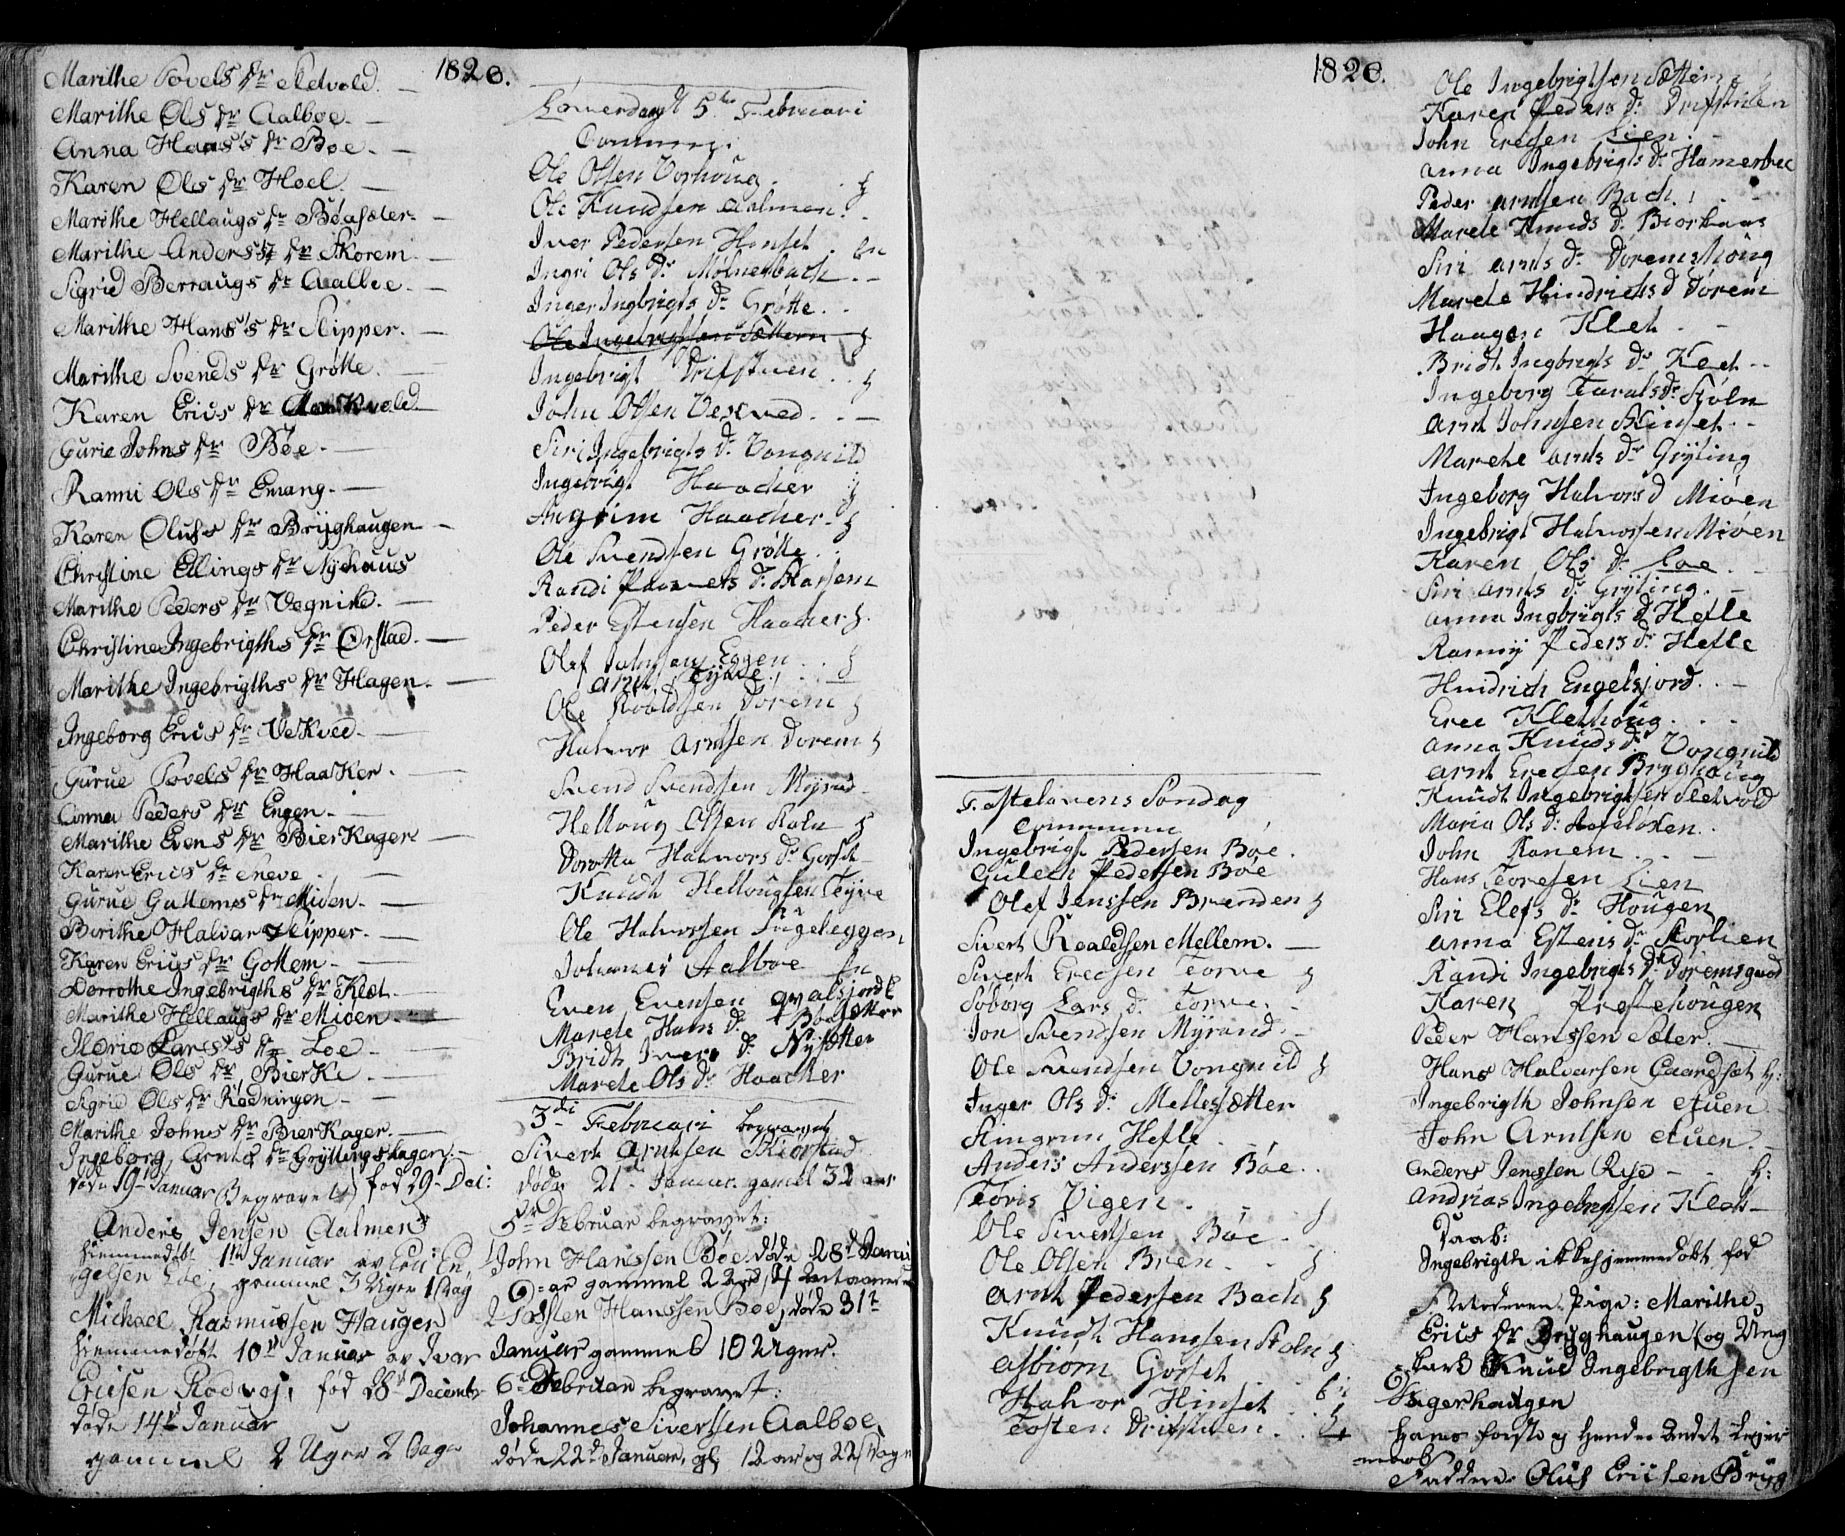 1820.
Marithe Povels Dr Sletvold. —
Marithe Ols Dr Aalboe. —
Anna Haas's Dr Bøe. —
Karen Ols Dr Hoel. —
Marithe Hellaugs Dr Bøasæter. —
Marithe Anders's Dr Skorem. —
Sigrid Berraugs Dr Aalboe. —
Marithe Hans's Dr Skipper. —
Marithe Svends Dr Grøtte. —
Karen Erics Dr
Gurie Johns Dr Bøe. —
Ranni Ols Dr Emang. —
Karen Olufs Dr Bryghaugen —
Christine Ellings Dr Nyhaus
Marithe Peders Dr Vognild. —
Christine Ingebrigths Dr Ørstad. —
Marithe Ingebrigths Dr Hagen. —
Ingeborg Erics Dr Vekved. —
Gurue Povels Dr Haaker. —
Anna Peders Dr Engen. —
Marithe Evens Dr BierKager —
Karen Erics Dr Eneve. —
Gurue Guttems Dr Miøen. —
Berithe Halvar Skipper. —
Karen Erics Dr Gottem —
Dorrothe Ingebrigths Dr Klæt. —
Marithe Hellaugs Dr Miøen. —
Lars's Dr Loe —
Gurue Ols Dr BierKe —
Sigrid Ols Dr Rødningen —
Marithe Johns Dr BierKager. —
Ingeborg Arnts Dr Gryttingshagen. —
døde 19 Januar Begravet fød 29 Dec:
Anders Jensen Aalmers
hiemmedøbt 1te Januar av Eric En
gelsen Loe, gammel 3 Uger 1 Dag
Michael Rasmussen Haugen
hiemmedøbt 10de Januar av Ivar
Ericsen Rødvej, fød 28de Decembr
døde 14de Januar
gammel 2 Uger 2 Dage
Løverdag d 5te Februari
Ole Olsen Vorhoug.
Ole Knudsen Aalmen.
Iver Pedersen Hinset.
Ingri Ols Dr Mølnerbach. —
Inger Ingbrigts Dr Grøtte.
Ole Ingebrigtsen Sættem
Ingebrigt Drifstuen.
John Olsen Vexved. —
Siri Ingebrigts Dr Vongnild
Ingebrigt Haacher
Angrim Haacher
Ole Svendsen Grøtte.
Randi Paavels Dr Skarsem
Peder Estensen Haacher
Olef Johnsen Eggen.
Arnt Tyvve.
Ole Roaldsen Dorem
Halvor Arntsen Dorem
Svend Svendsen Myrand
Helloug Olsen Stoln
Dorothe Halvors Dr Gorset
Knudt Hellougsen Tyvve
Ole Halvorsen Fugeleggen
Johannes Aalboe
Even Evensen Qvalsjordet
Marete Hans Dr Bøesætter
Bridt Ivers Dr Nysætter
Marete Ols Dr Haacher
3die Februari begravet
Sivert Arntsen Skiørstad
døde 21de Januar gamel 32 aar
5te Februar begravet:
John Hanssen Bøe døde 28de Janu
Torsten Hanssen Bøe, døde 31te
Januar gammel 10 Uger.
6te Februar begravet:
Johannes Siverssen Aalboe,
døde 22de Januar, gl. 12 ar og 22 Dage
1820.
Fastelavens Søndag
Communin
Ingebrigt Pedersen Bøe.
Gulech Pedersen Bøe
Olef Jenssen Brenden
Sivert Roaldsen Mellem. —
Sivert Erecsen Torve
Soborg Lars Dr Torve. —
Jon Svendsen Myrand. —
Ole Svendsen Vongnild
Inger Ols Dr Mellesætter
Hefle
Anders Anderssen Bøe.
Toris Vigen.
Ole Sivertsen Bøe.
Ole Olsen Bren.
Arnt Pedersen Bach
Knudt Hanssen Stoln
Asbiørn Gorset
Halvor Hinset
Tosten Drifstuen.
Ole Ingebrigtsen Sættem
Karen Peders Dr Drifstuen
John Erecsen Lien. —
Anna Ingebrigts Dr Hamerbec
Peder Arntsen Bach. —
Marete Knuds Dr Biorkaas
Siri Arnts Dr Doremshoug
Marete Hindrichs D Dorem
Haagen Klet. —
Bridt Ingbrigts Dr Kleet. —
Ingeborg Taralds Dr Stoln
Arnt Johnsen Skinset. —
Marete Arnts Dr Gryting
Ingeborg Halvors D Miøen
Ingebrigt Halvorsen Miøen
Karen Ols Dr Loe.
Siri Arnts Dr Gryting. —
Anna Ingbrigts D Hefle
Ranny Peders Dr Hefle
Hindrich Engelsjord. —
Erec Klethoug.
Anna Knuds Dr Vongnild
Arnt Erecsen Bryghoug
Knudt Ingebrigtsen Sletvold
Maria Ols Dr
John Ranem. —
Hans Toresen Lien
Siri Elefs Dr Hougen
Anna Estens Dr Storlien
Randi Ingebrigts Dr Doremsgaad
Karen Prestehougen
Peder Hanssen Sæter. —
Hans Halvarsen Gaardset
Ingebrigth Johnsen Stuen
John Arntsen Stuen —
Anders Jenssen Rise —
Andrias Ingebrigtsen Klæt —
Daab:
Ingebrigth ikke hjemmedøbt, fød
Moderen Pige: Marithe
Erics Dr Bryghaugen (og Ung
karl Knud Ingebrigthsen
Hagerhaugen
Hans første og Hendes andet Leier
maal
Faddere Oluf Ericsen Bryg